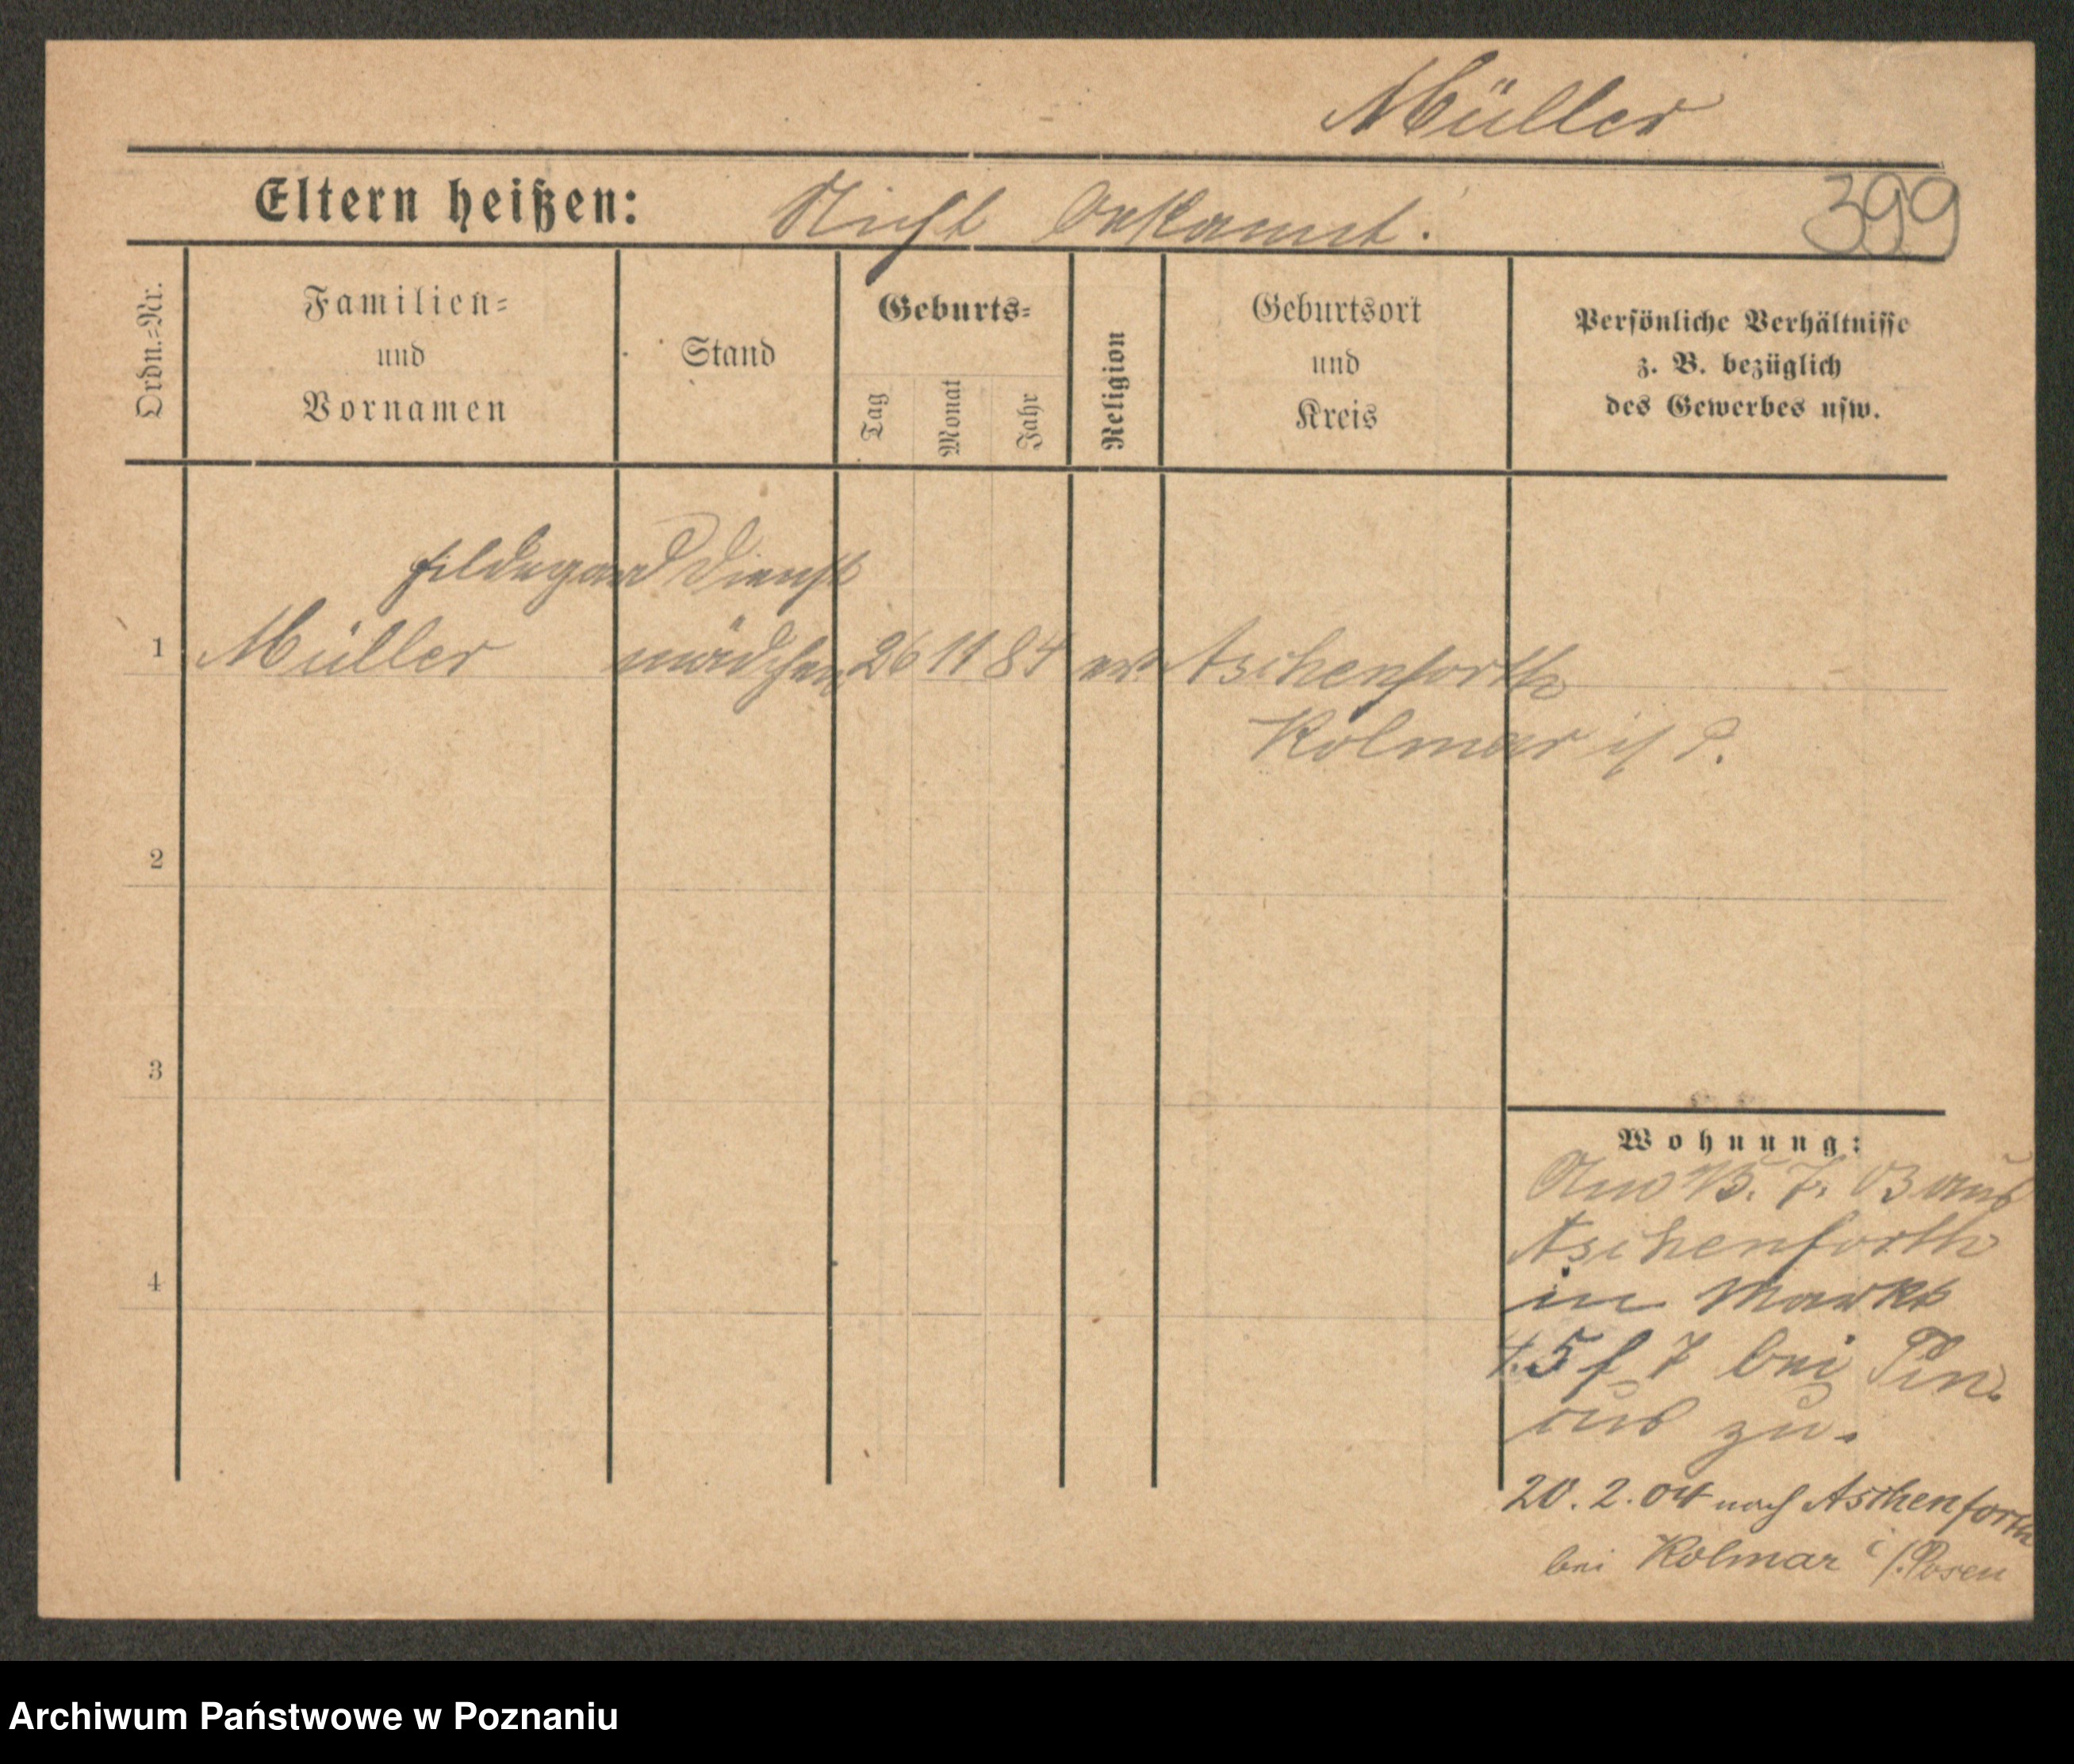 Müller
Eltern heißen: Nicht bekannt.
399
Ordn.-Nr.
Familien- und Vornamen
Stand
Geburts-
Tag
Monat
Jahr
Religion
Geburtsort und Kreis
Persönliche Verhältnisse
z. B. bezüglich
des Gewerbes usw.
Hildegard Dienst
1 Müller mädchen 26 11 84 ev. Aschenforth
Kolmar i/ P.
2
3
4
Wohnung:
7. 03 aus
Aschenforth
in Markt
bei
zu.
20. 2. 04 nach Aschenforth
bei Kolmar i/. Posen
Archiwum Państwowe w Poznaniu